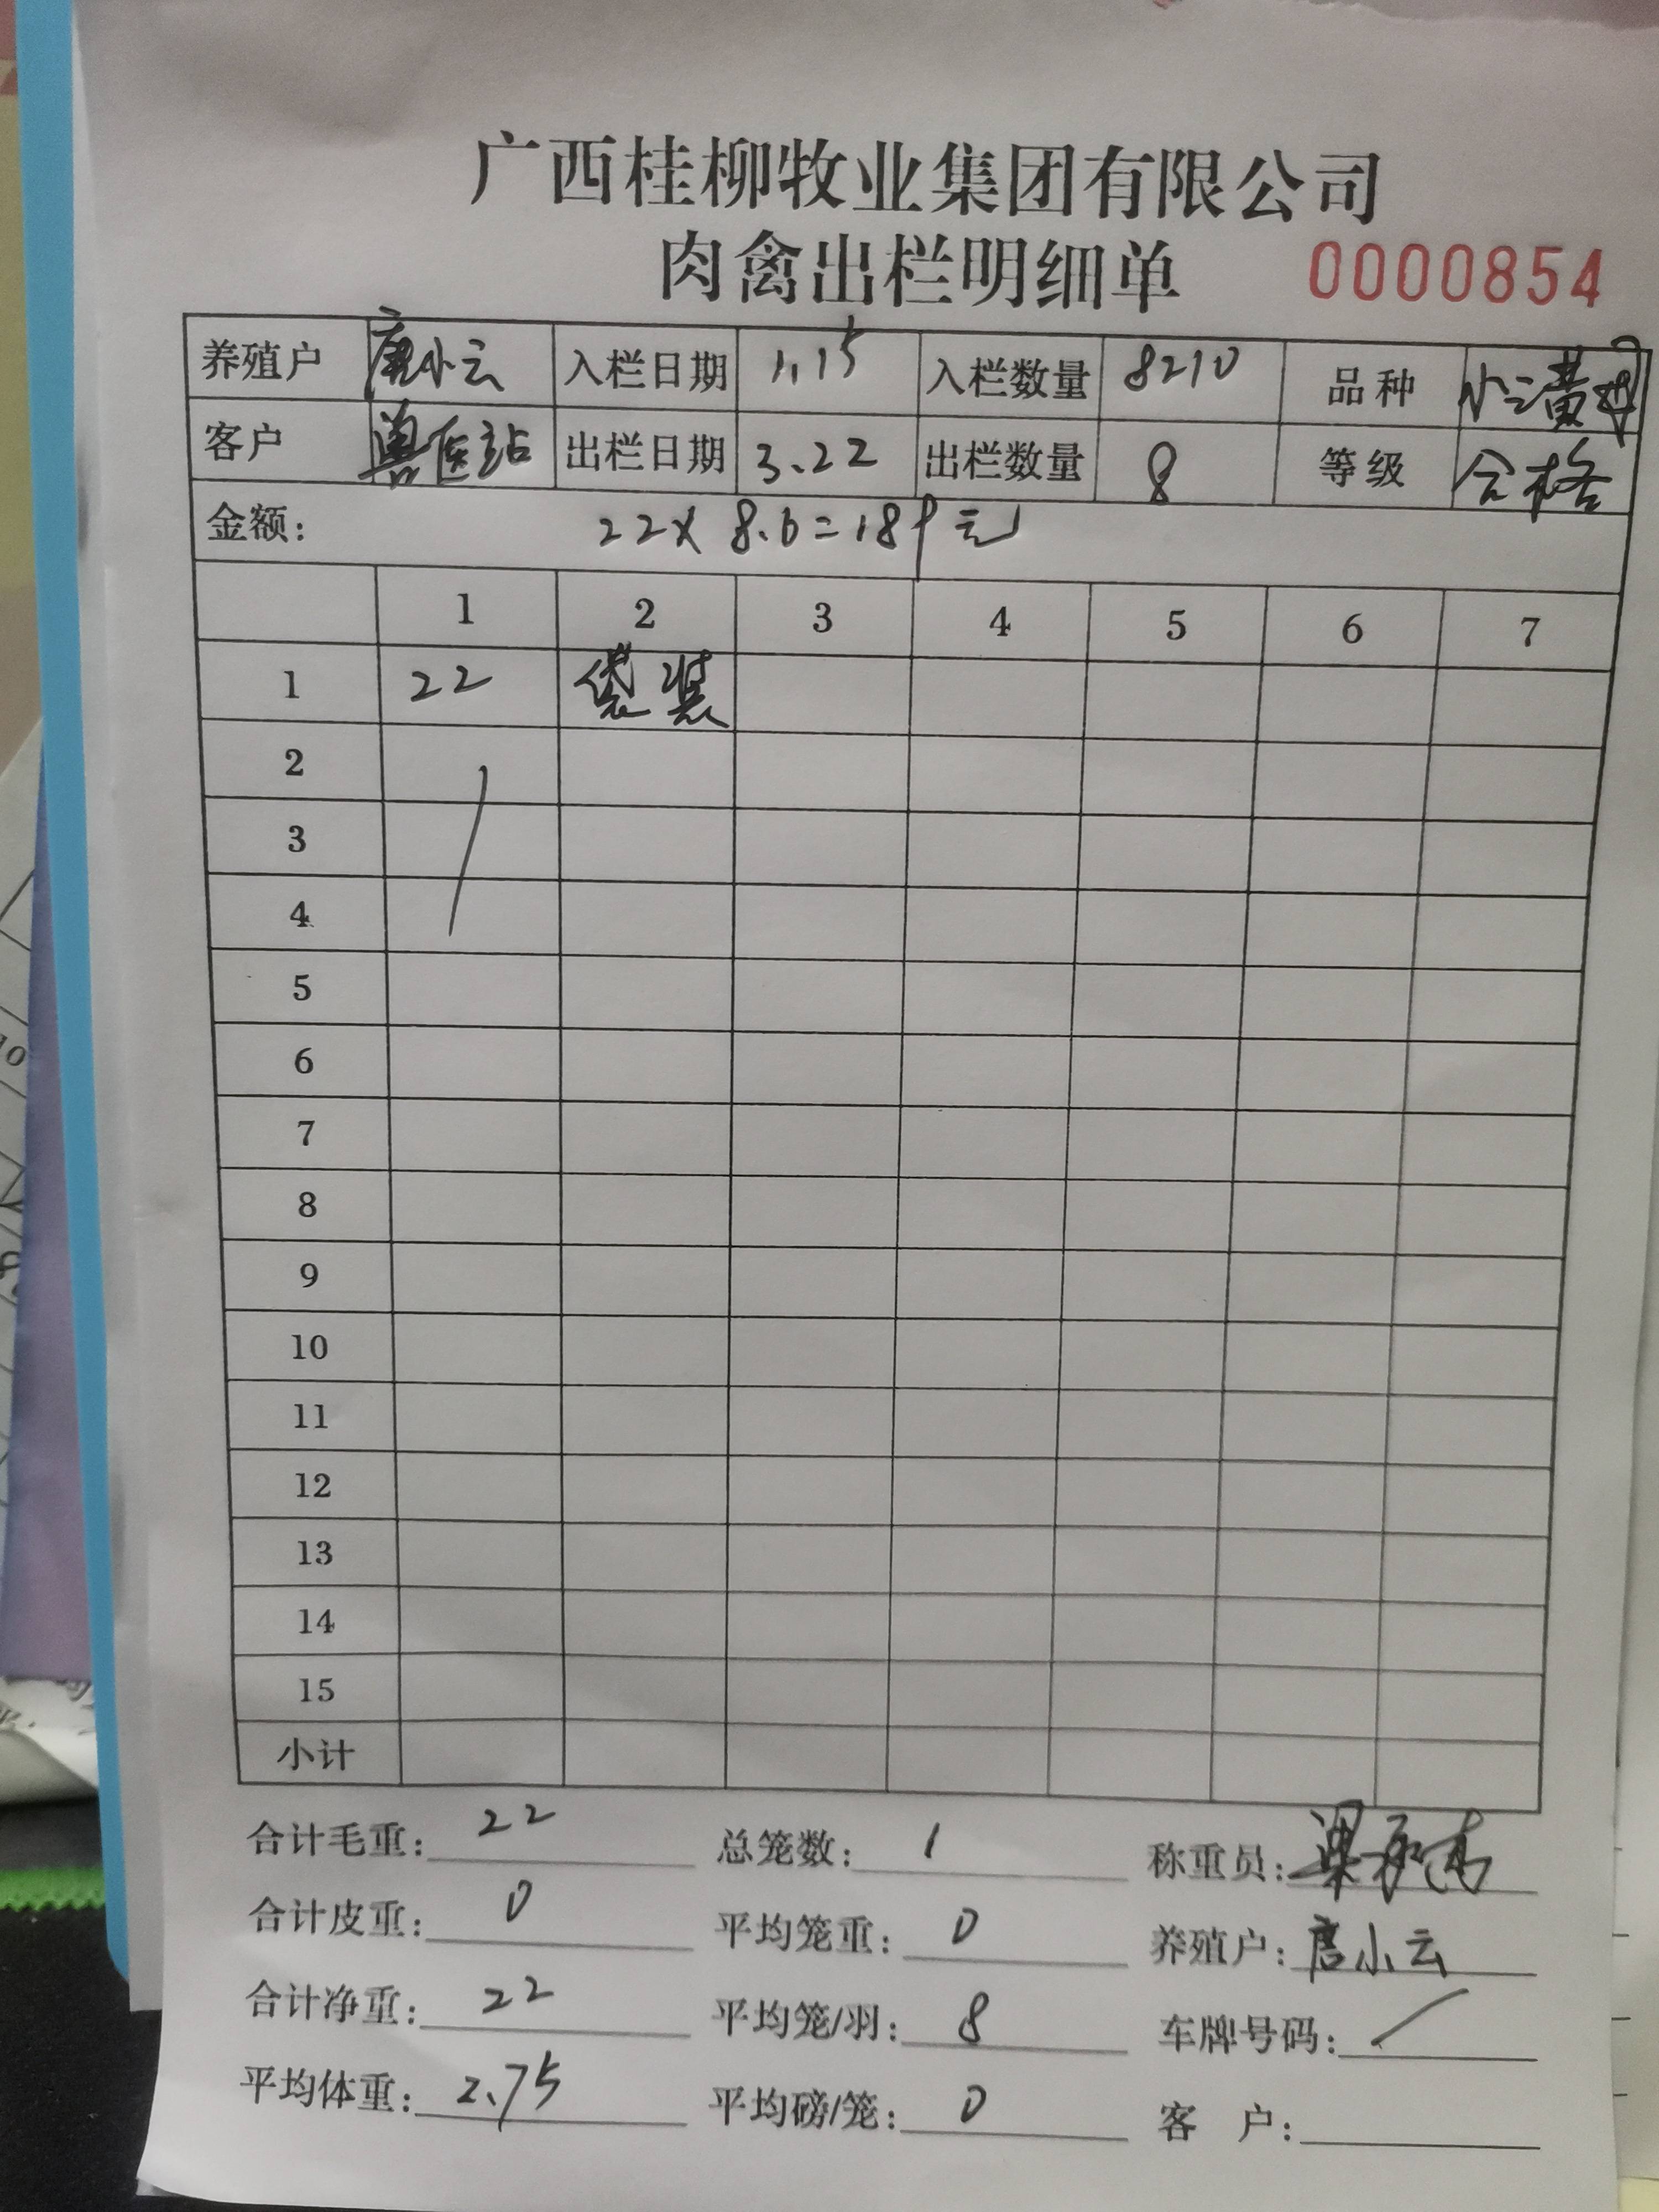 广西桂柳牧业集团有限公司
肉禽出栏明细单 0000854
养殖户 唐小云 入栏日期 1.15 入栏数量 8210 品种 小二黄
客户 兽医站 出栏日期 3.22 出栏数量 8 等级 合格
金额: 22×8.6=189元
1 2 3 4 5 6 7
1 22 袋装
2
3
4
5
6
7
8
9
10
11
12
13
14
15
小计
合计毛重: 22 总笼数: 1 称重员:
合计皮重: 0 平均笼重: 0 养殖户: 唐小云
合计净重: 22 平均笼/羽: 8 车牌号码: /
平均体重: 2.75 平均磅/笼: 0 客 户: